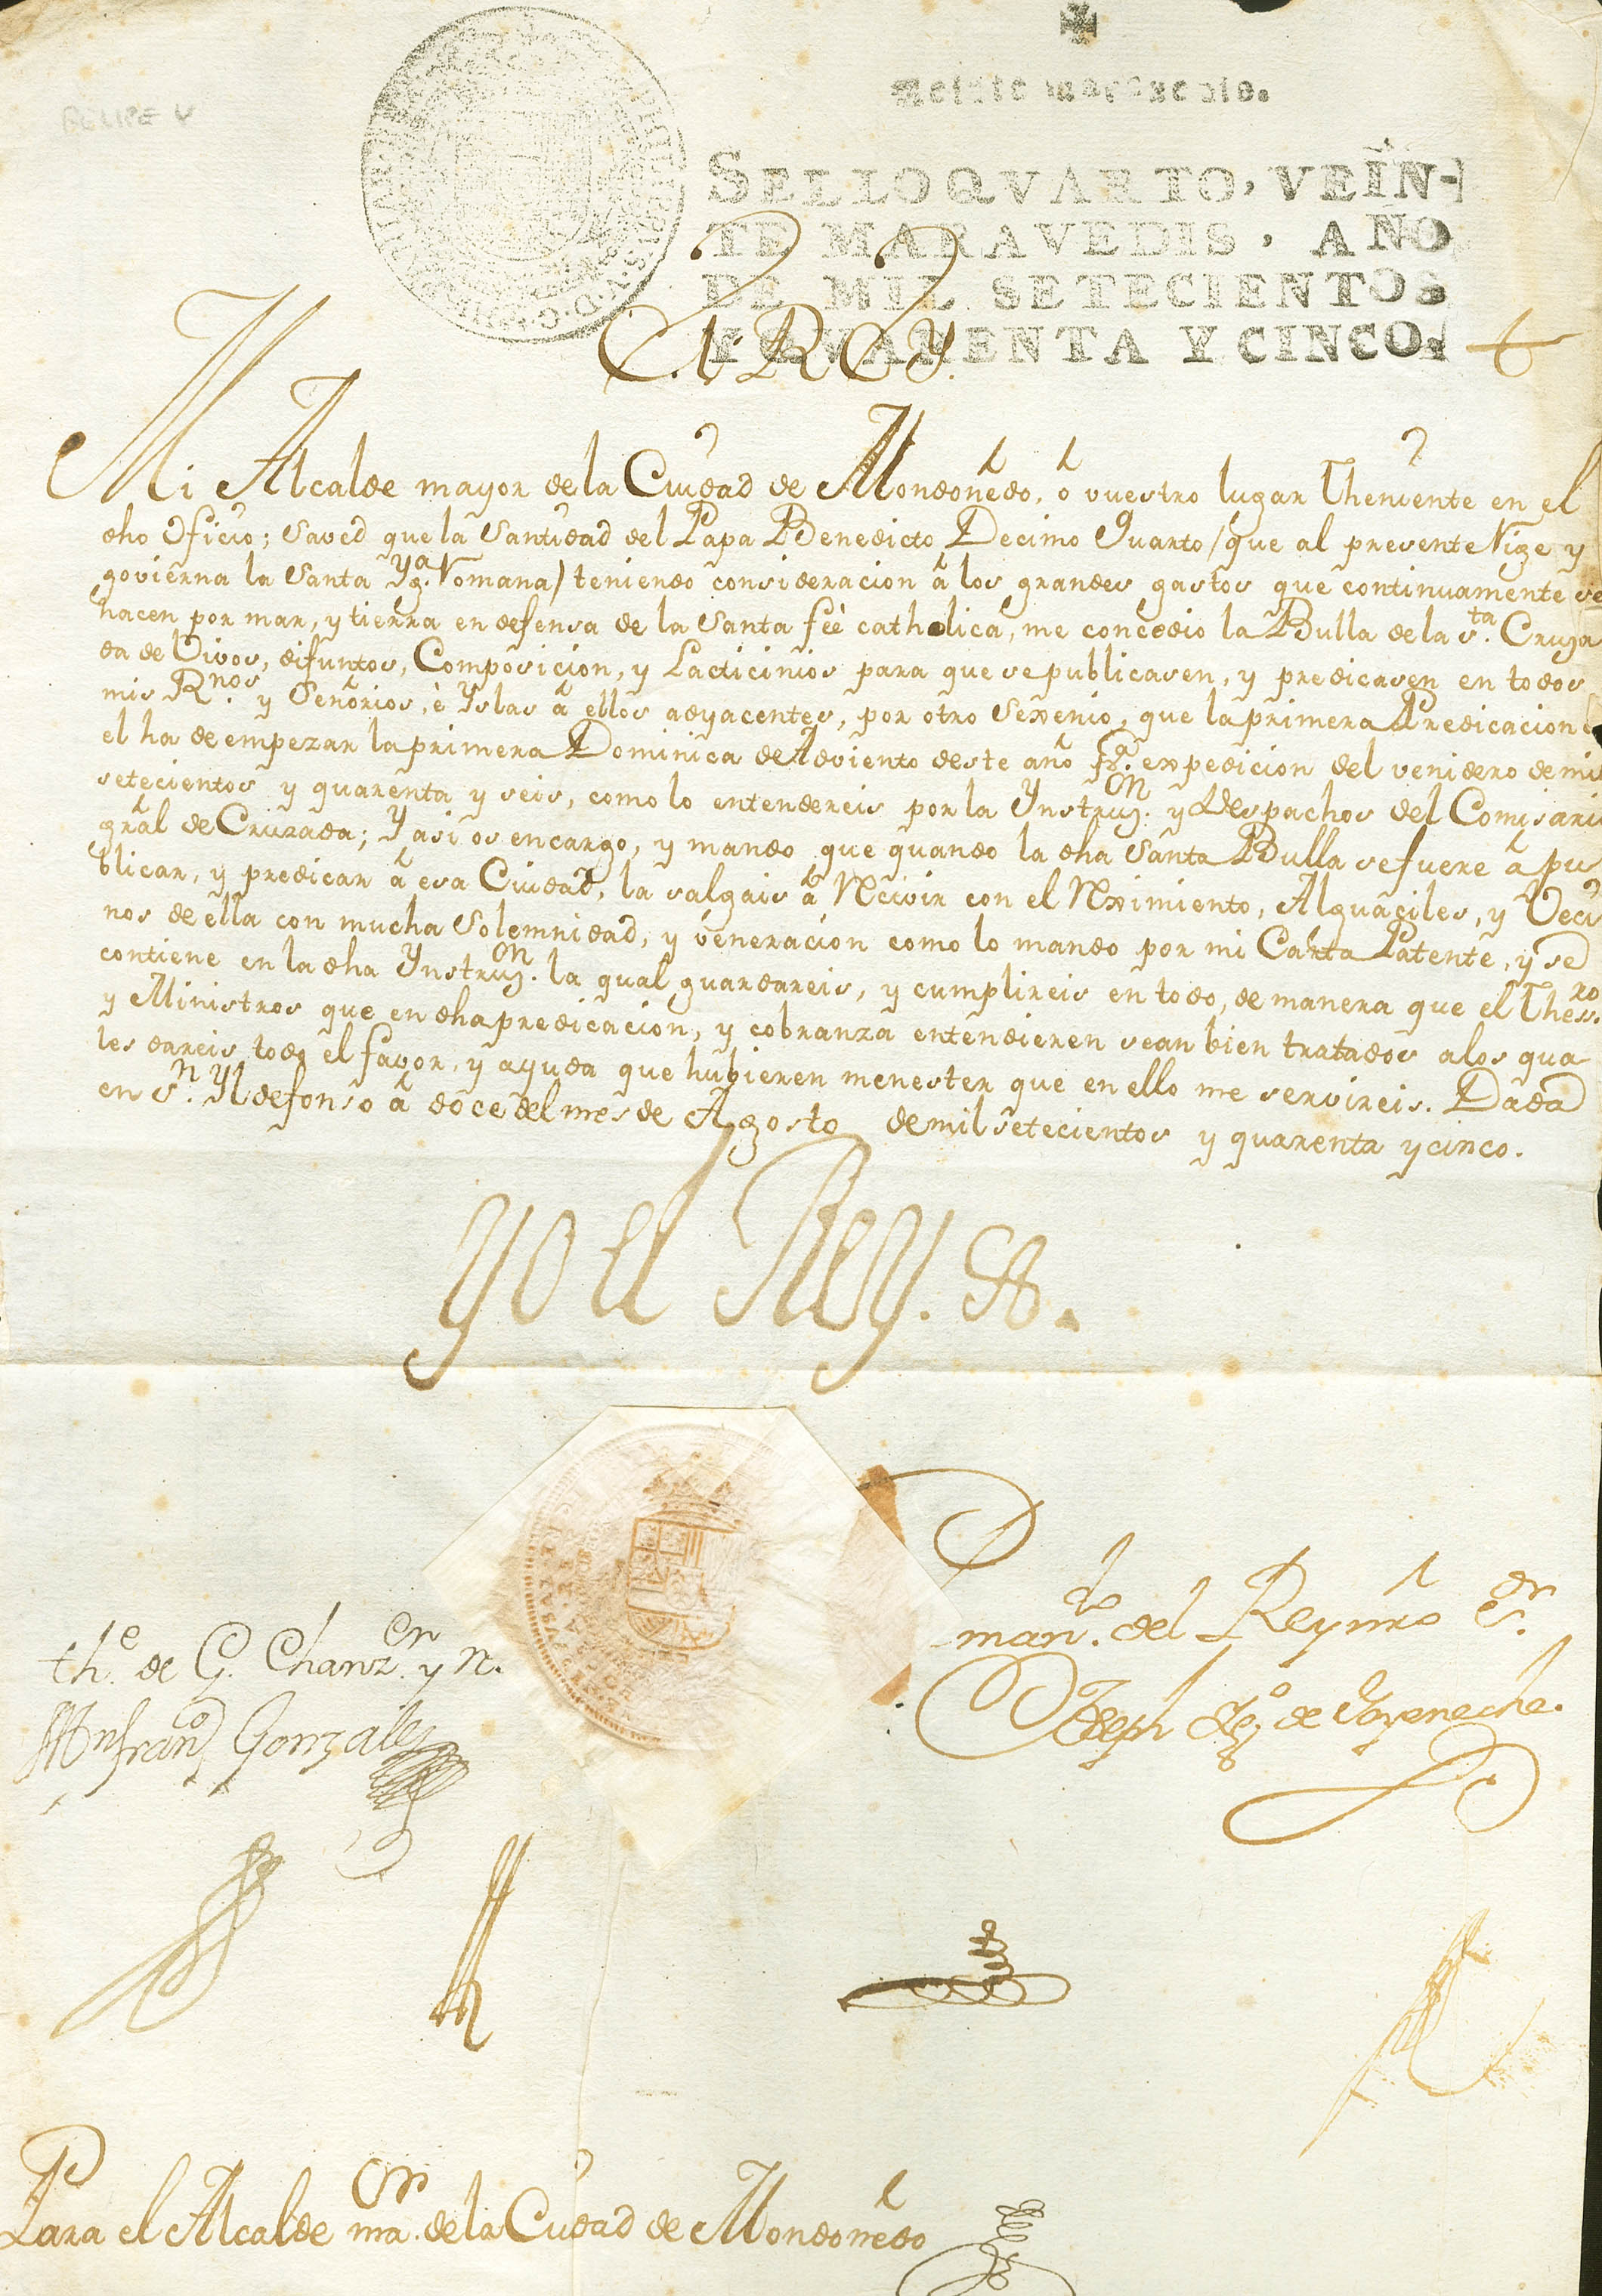 FELIPE V
Veinte maravedis.
SELLO QVARTO, VEIN-
TE MARAVEDIS, AÑO
DE MIL SETECIENTOS
Y QVARENTA Y CINCO.
El Rey.
Mi Alcalde mayor de la Ciudad de Mondoñedo, ó vuestro lugar Theniente en el
dho Oficio; Saved que la Santidad del Papa Benedicto Decimo Quarto / que al presente Rige y
govierna la Santa Yg.ª Romana / teniendo consideracion á los grandes gastos que continuamente se
hacen por mar, y tierra en defensa de la Santa feé catholica, me concedio la Bulla de la S.ta Cruza
da de Vivos, difuntos, Composicion, y Lacticinios para que se publicasen, y predicasen en todos
mis R.nos y Señorios, é Yslas á ellos adyacentes, por otro Sexenio, que la primera Predicacion
el ha de empezar la primera Dominica de Adviento deste año p.ª expedicion del venidero de mil
setecientos y quarenta y seis, como lo entendereis por la Ynstruz.on y Despachos del Comisario
grâl de Cruzada; Y asi os encargo, y mando que quando la dha Santa Bulla se fuere á pu
blicar, y predicar á esa Ciudad, la salgais á Recivir con el Reximiento, Alguaciles, y Veci
nos de ella con mucha Solemnidad, y veneracion como lo mando por mi Carta Patente, y se
contiene en la dha Ynstruz.on la qual guardareis, y cumplireis en todo, de manera que el Thess.ro
y Ministros que en dha predicacion, y cobranza entendieren sean bien tratados a los qua
les dareis todo el favor, y ayuda que hubieren menester que en ello me servireis. Dada
en S.n Yldefonso á doce del mes de Agosto de mil setecientos y quarenta y cinco.
Yo el Rey.
man.do del Rey nro S.or
Joseph de Goyeneche.
th.e de G. Chanz.er y R.
Mn fran.co Gonzalez
Para el Alcalde ma.or de la Ciudad de Mondoñedo